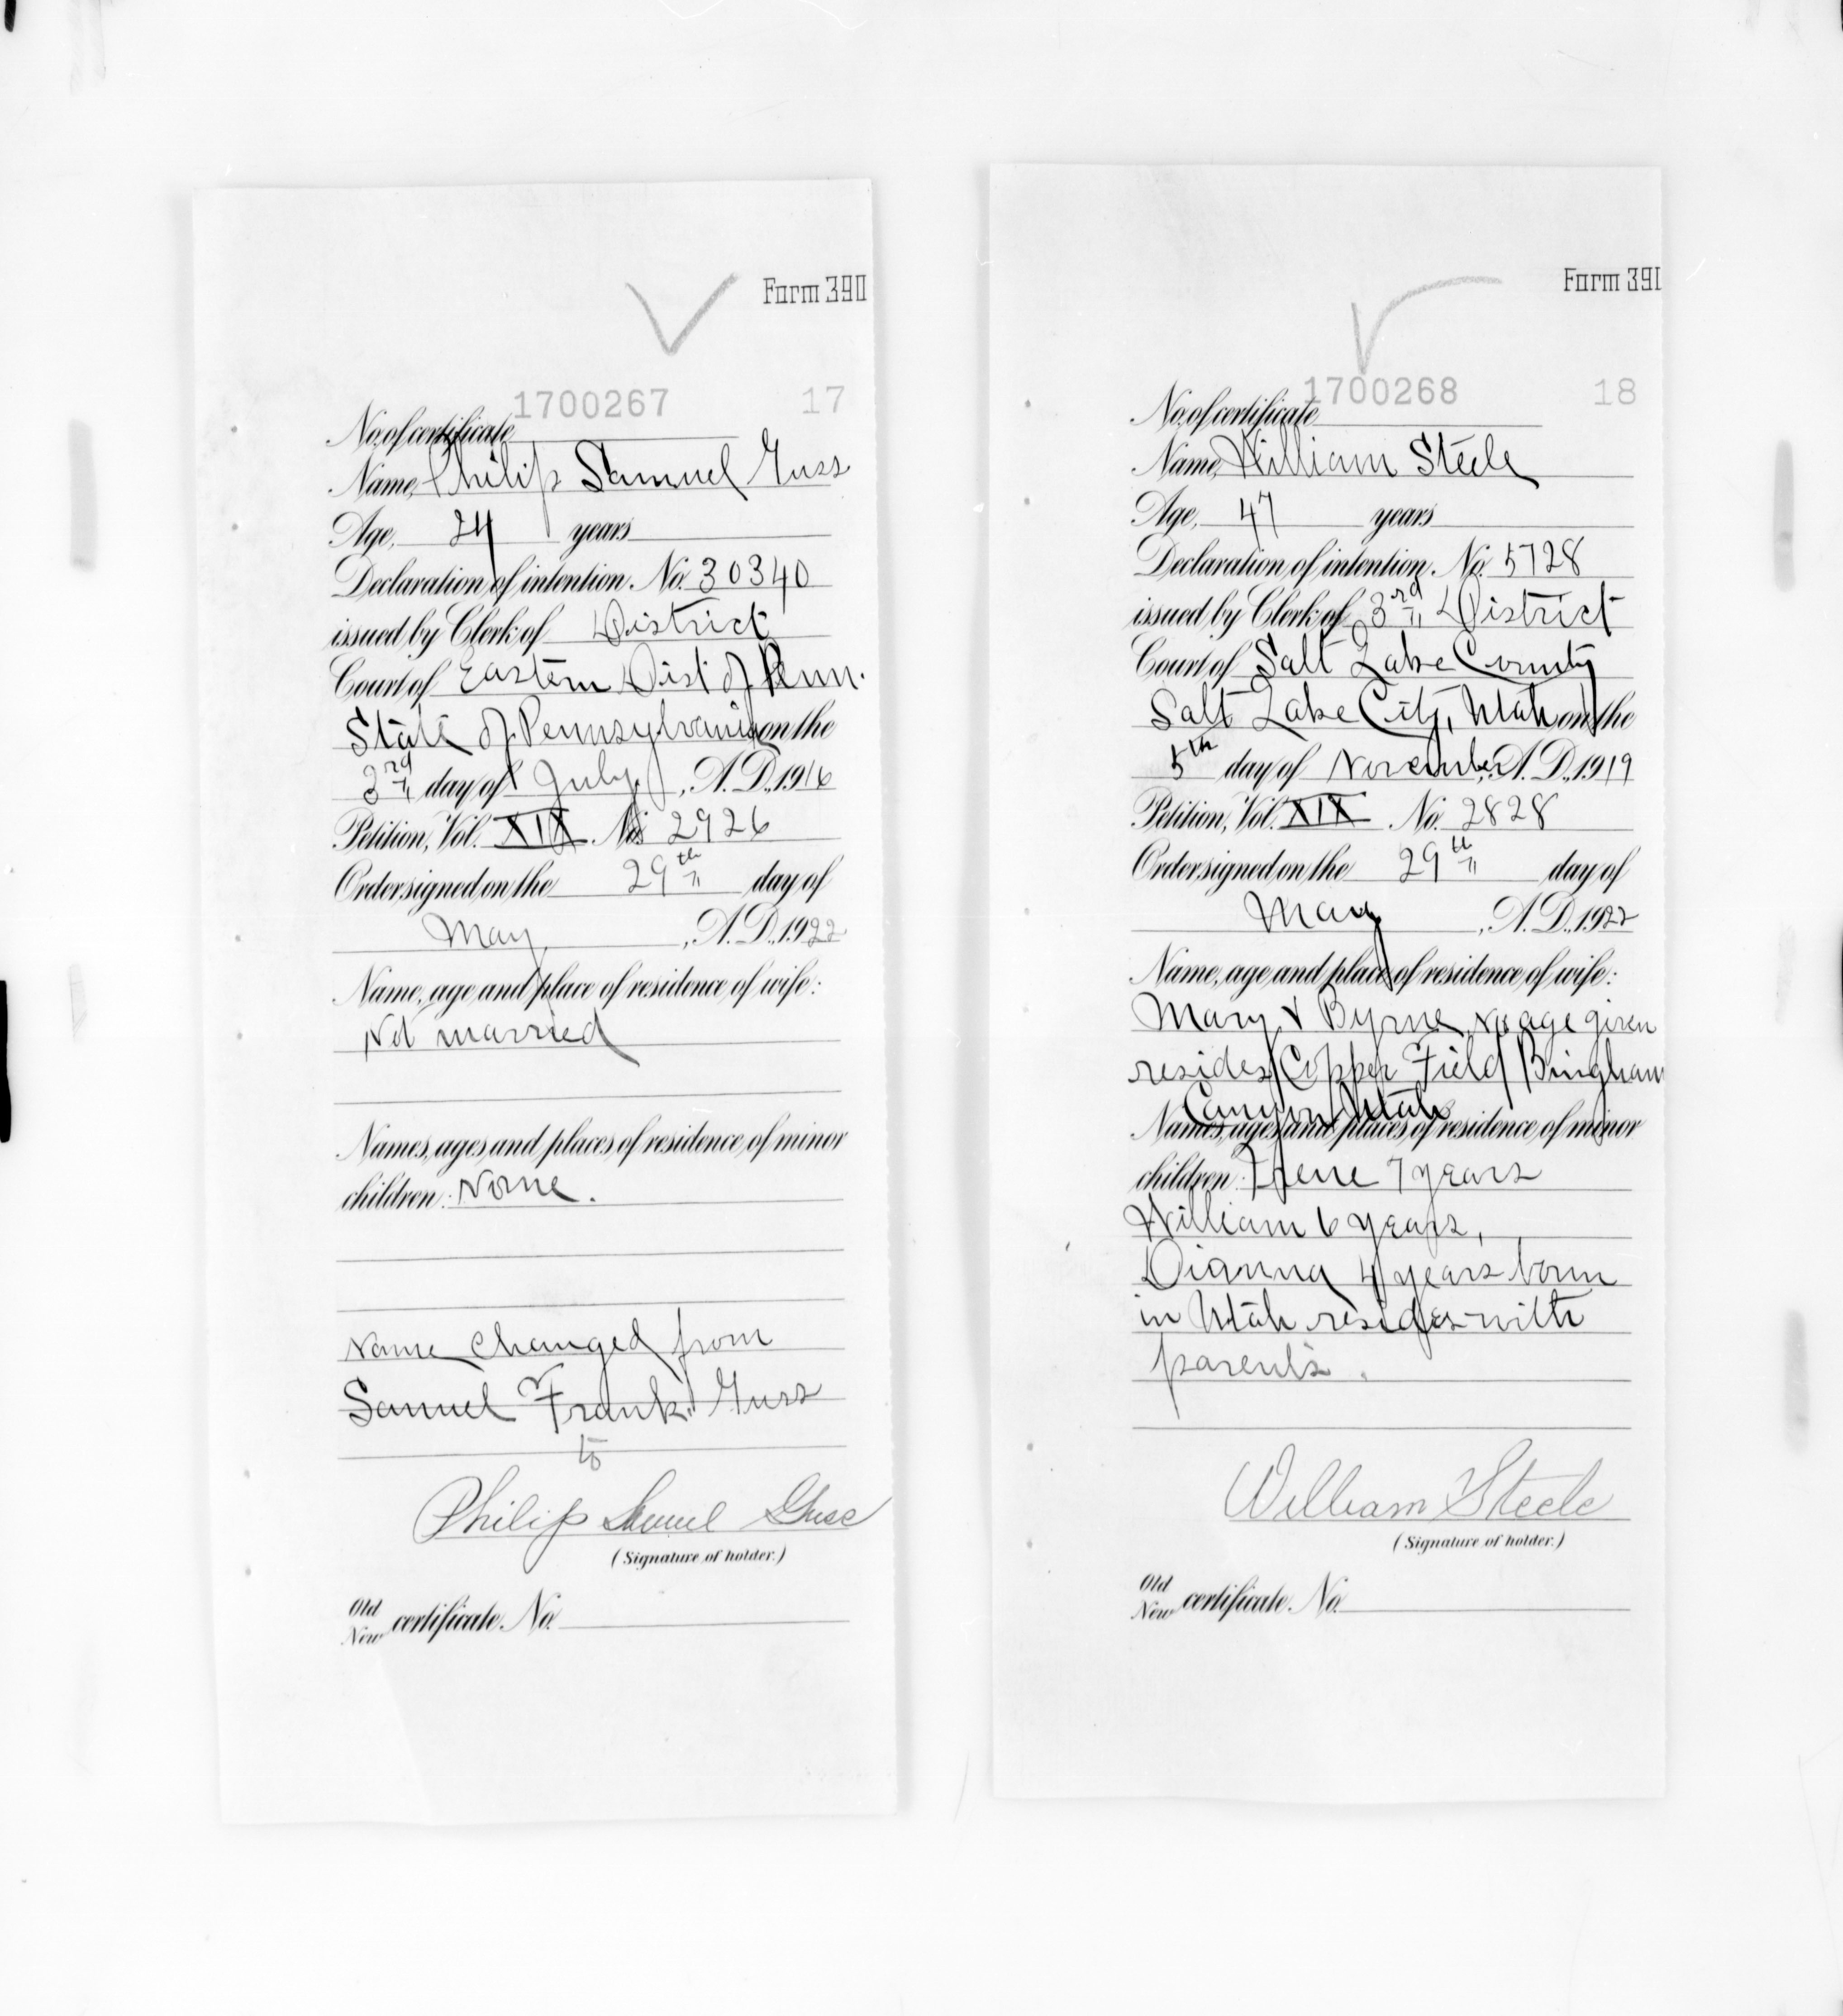 Form 390
1700267 17
No. of certificate
Name, Philip Samuel Guss
Age, 24 years
Declaration of intention. No. 30340
issued by Clerk of District
Court of Eastern Dist of Penn.
State of Pennsylvania on the
3rd day of July, A. D., 1916
Petition, Vol. XIX No. 2926
Order signed on the 29th day of
May, A. D., 1922
Name, age and place of residence of wife:
Not married
Names, ages and places of residence of minor
children: None.
Name changed from
Samuel Frank Guss
to
Philip Samuel Guss
(Signature of holder.)
Old
New certificate. No.
Form 391
1700268 18
No. of certificate
Name, William Steele
Age, 47 years
Declaration of intention. No. 5728
issued by Clerk of 3rd District
Court of Salt Lake County
Salt Lake City, Utah on the
5th day of November, A. D., 1919
Petition, Vol. XIX No. 2828
Order signed on the 29th day of
May, A. D., 1922
Name, age and place of residence of wife:
Mary Byrne, No age given
resides Copper Field Bingham
Canyon Utah
Names, ages and places of residence of minor
children: Irene 7 years
William 6 years,
Dianna 4 years born
in Utah resides with
parents.
William Steele
(Signature of holder.)
Old
New certificate. No.